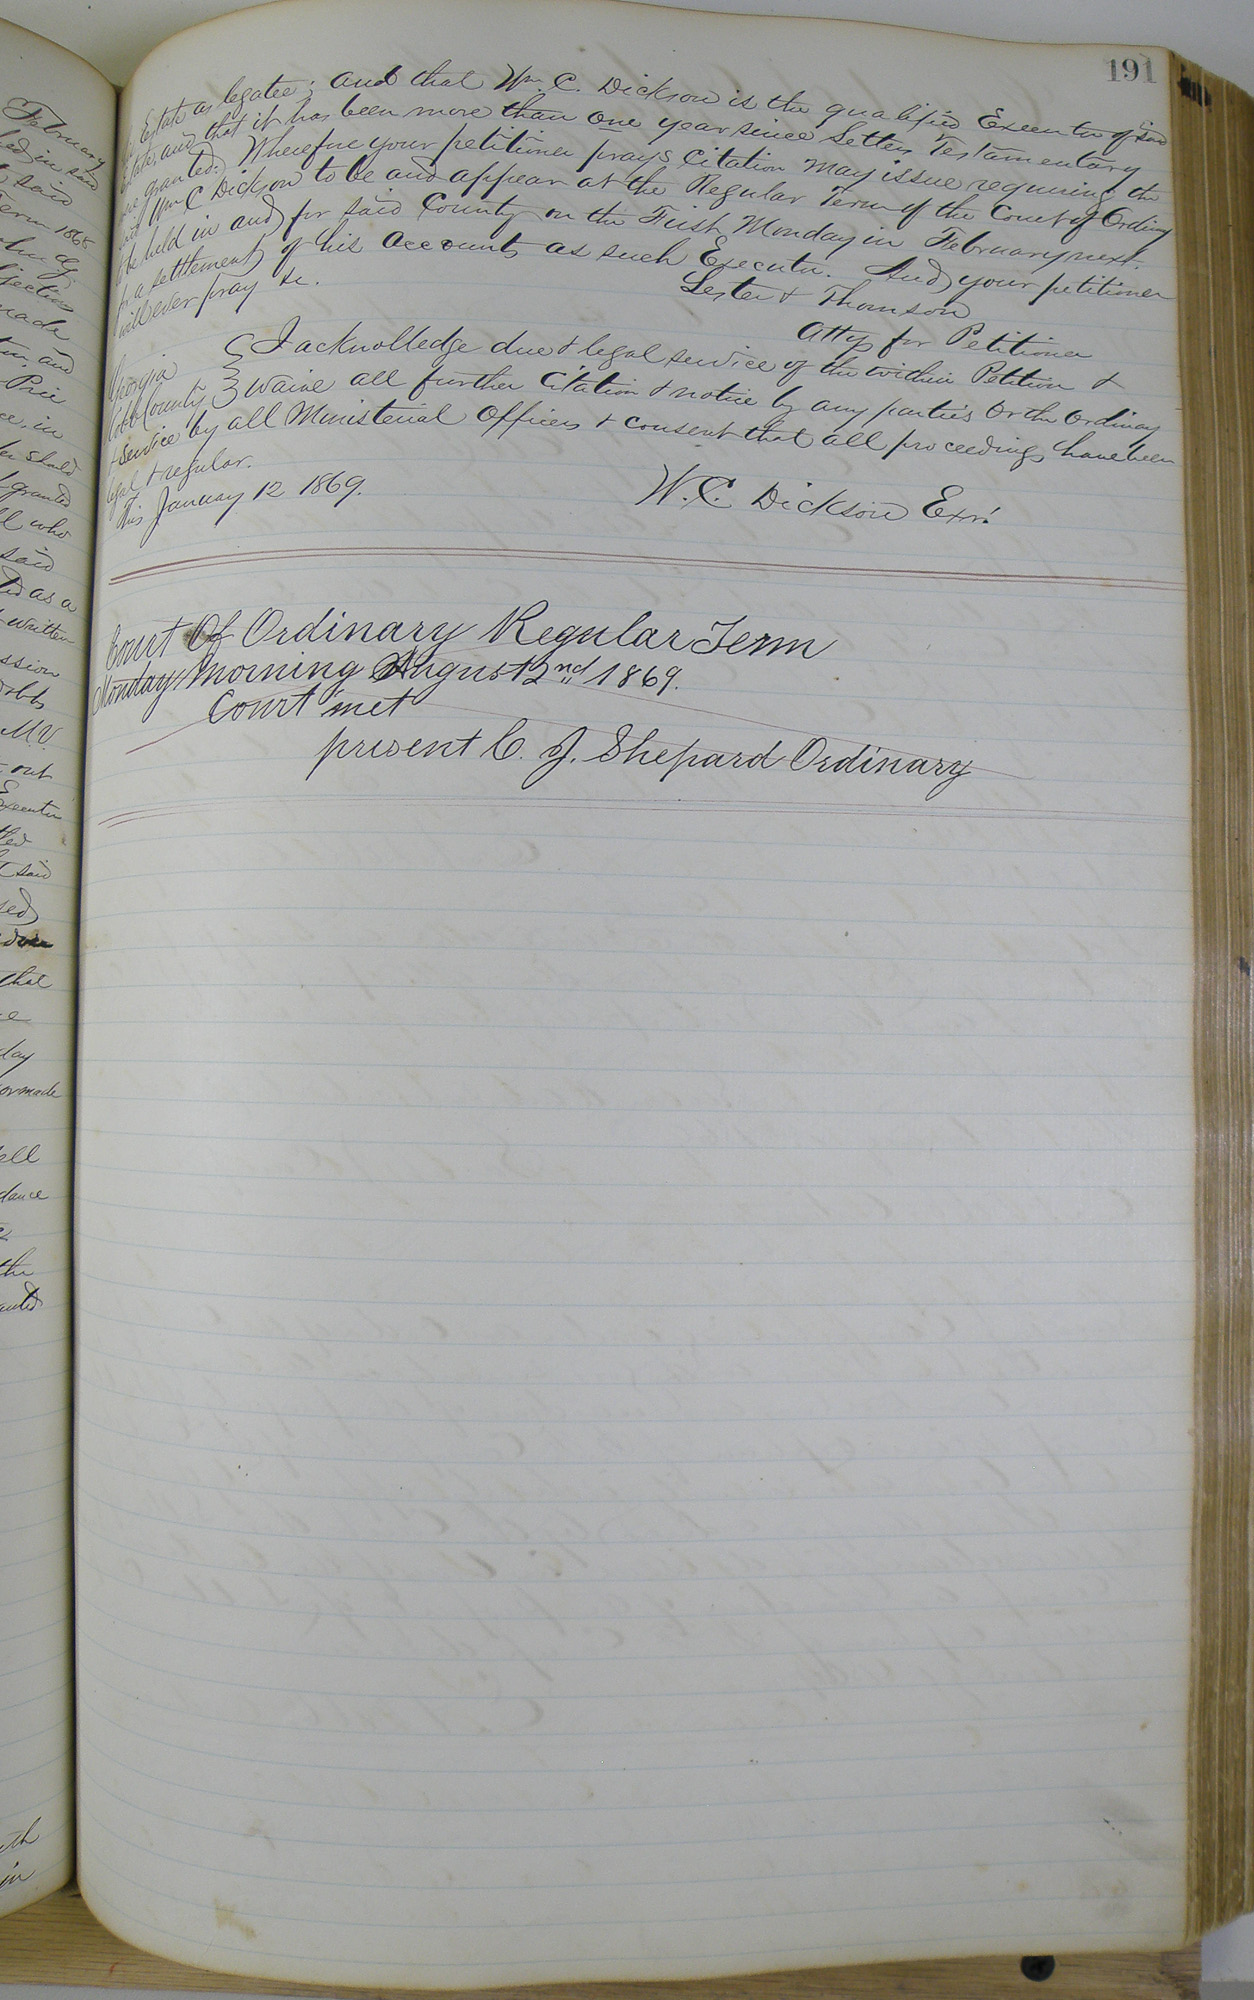 191
Estate as legatee; and that Wm. C. Dickson is the qualified Executor of said
Estate, and that it has been more than one year since Letters Testamentary
were granted. Wherefore your petitioner prays Citation may issue requiring the
said Wm C Dickson to be and appear at the Regular Term of the Court of Ordinary
to be held in and for said County on the First Monday in February next.
for a settlement of his accounts as such Executor. And your petitioner
will ever pray &c.
Lester & Thomson
Attys for Petitioner
Georgia
Cobb County
I acknolledge due & legal service of the within Petition &
waive all further Citation & notice by any parties or the Ordinary
& service by all Ministerial Officers & consent that all proceedings have been
legal & regular.
This January 12 1869.
W. C. Dickson Exr.
Court Of Ordinary Regular Term
Monday Morning August 2nd 1869.
Court met
present C. J. Shepard Ordinary
February
said
Term 1868
made
and
Price
in
should
granted
who
said
as a
written
M.V.
out
Executor
said
that
day
made
the
in